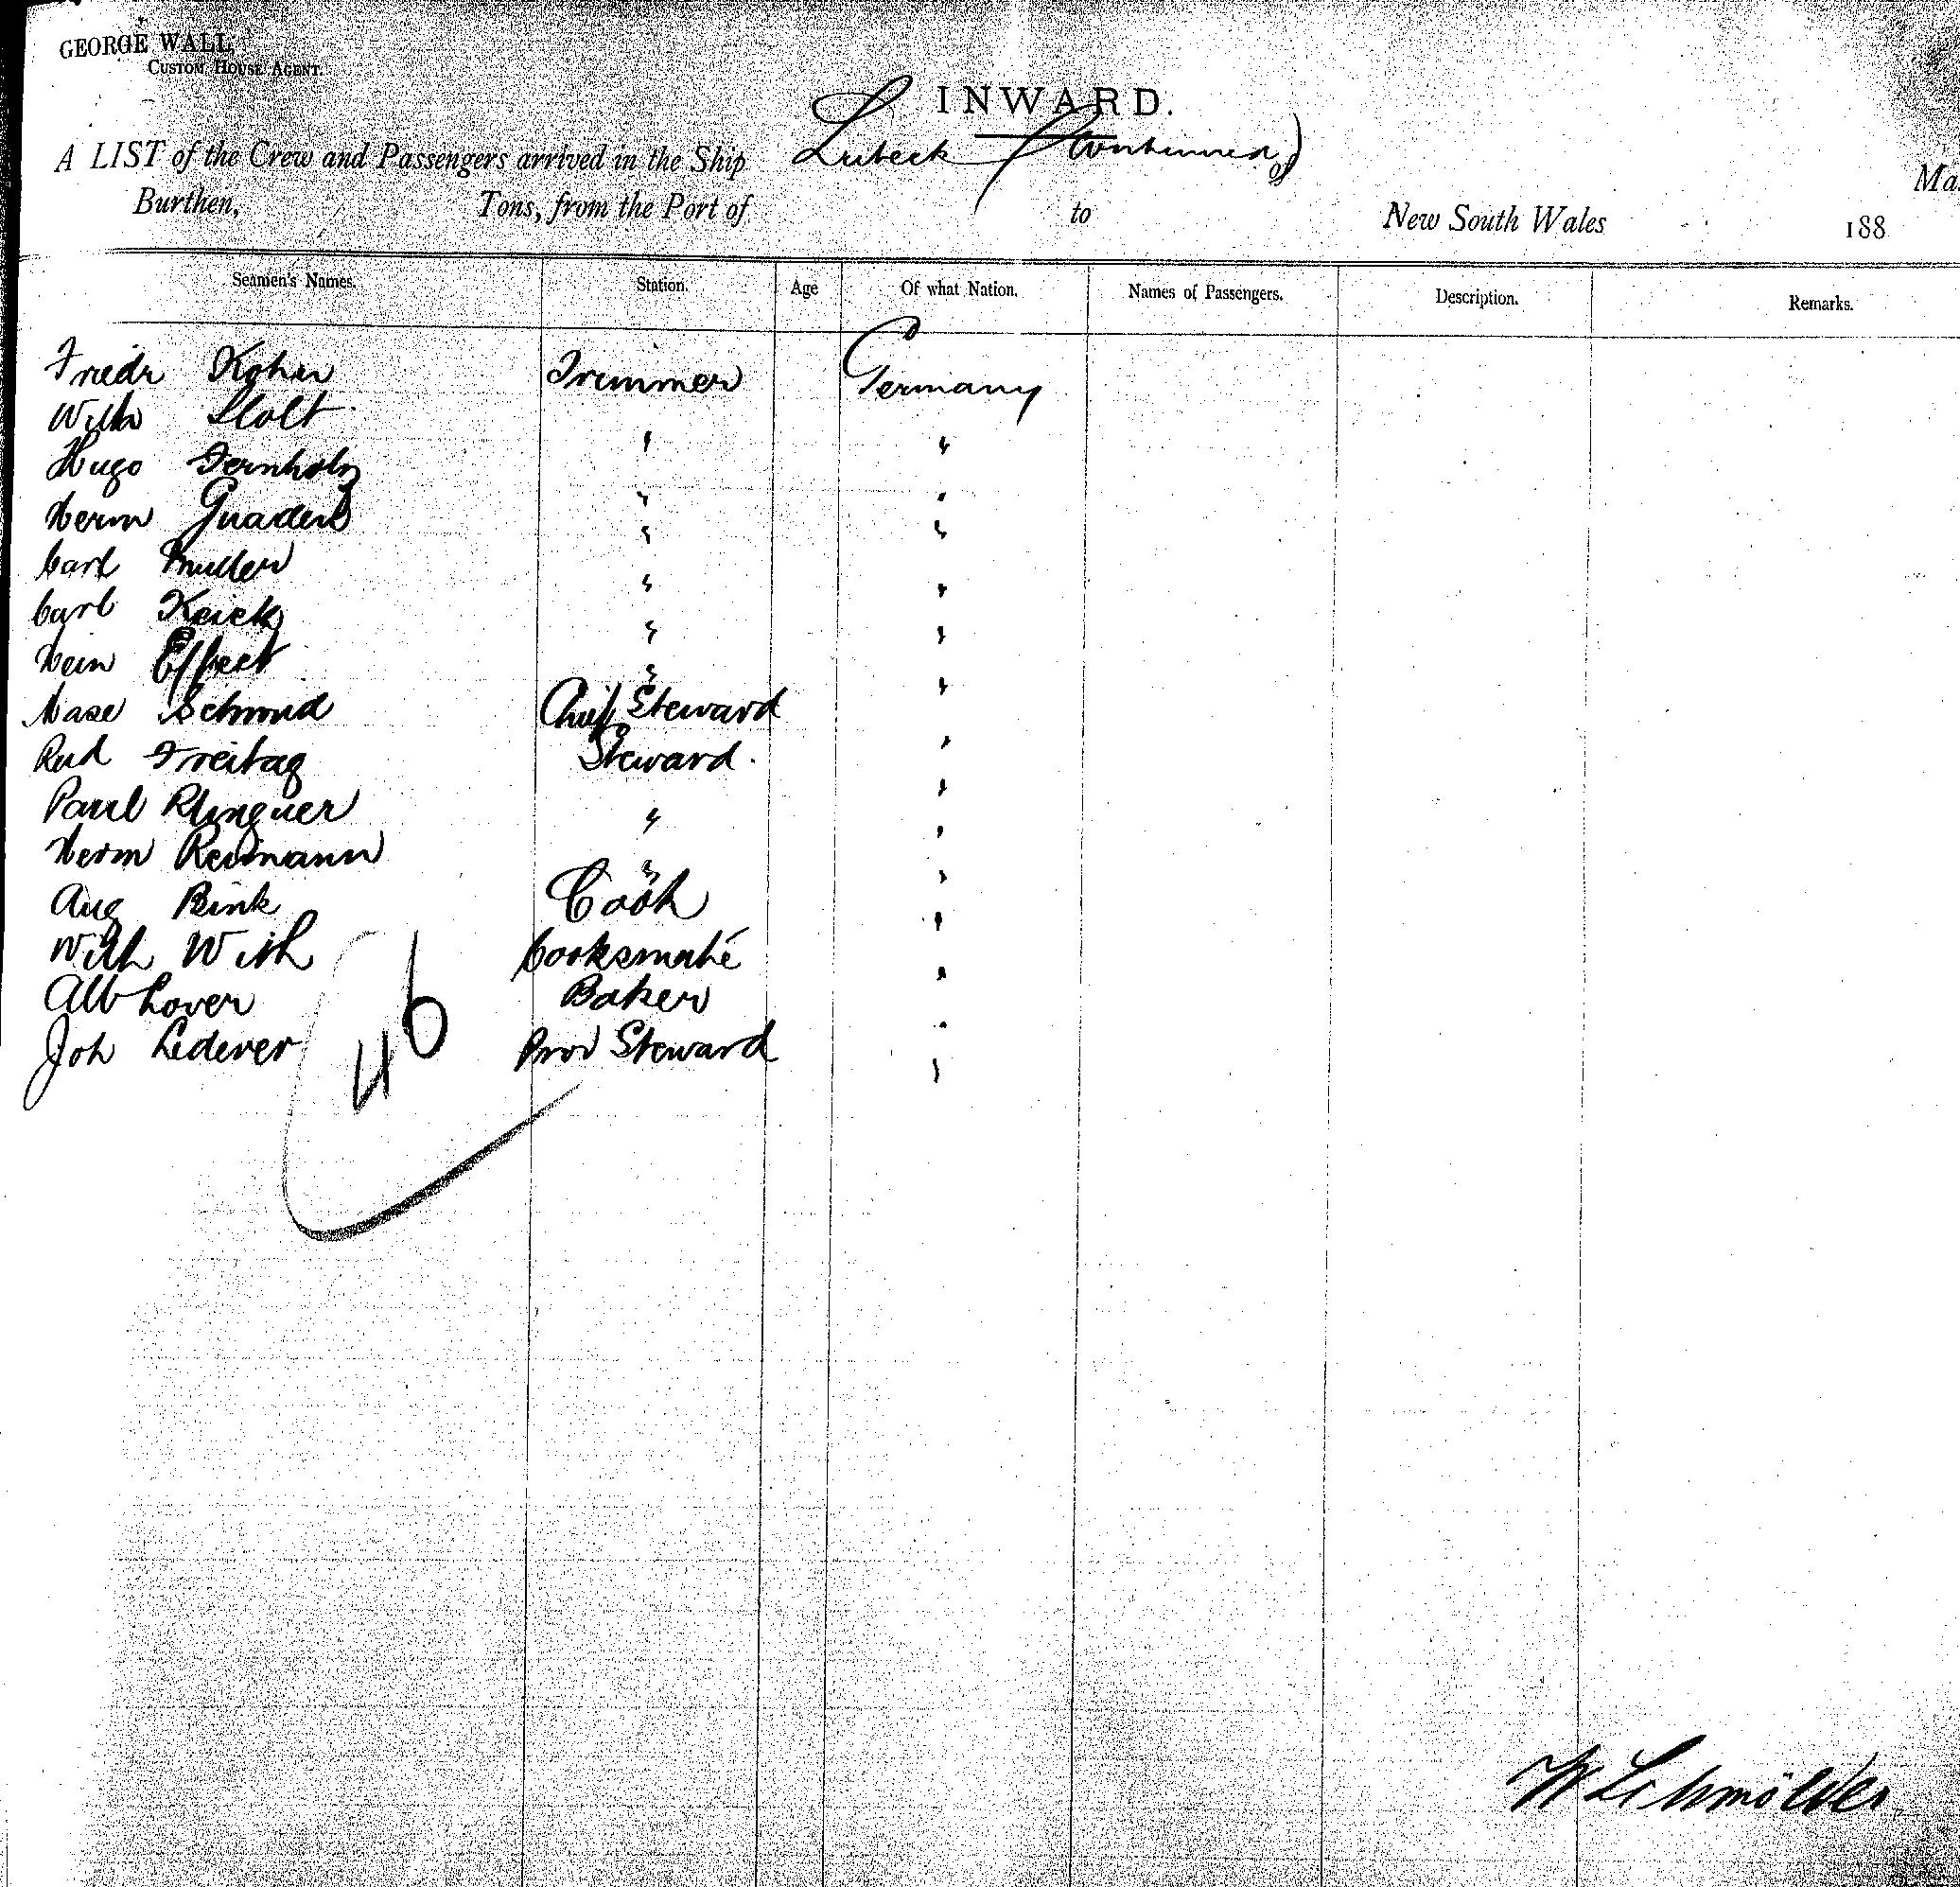 GEORGE WALL,
CUSTOM HOUSE AGENT.
INWARD.
A LIST of the Crew and Passengers arrived in the Ship Lubeck (Continued) of
Burthen, Tons, from the Port of to New South Wales 188
Seamen's Names. Station. Age Of what Nation. Names of Passengers. Description. Remarks.
Friedr Kohn Trimmer Germany
Wilh Stolt " "
Hugo Fernholz " "
Herm " "
Carl Muller " "
Carl " "
Hein Effert " "
Schmid Chief Steward "
Rud Freitag Steward. "
Paul Klingner " "
Herm Reumann " "
Aug Bink Cook "
Wilh With Cooksmate "
Alb Lover Baker "
Joh Lederer Prov Steward "
46
W Schmölder